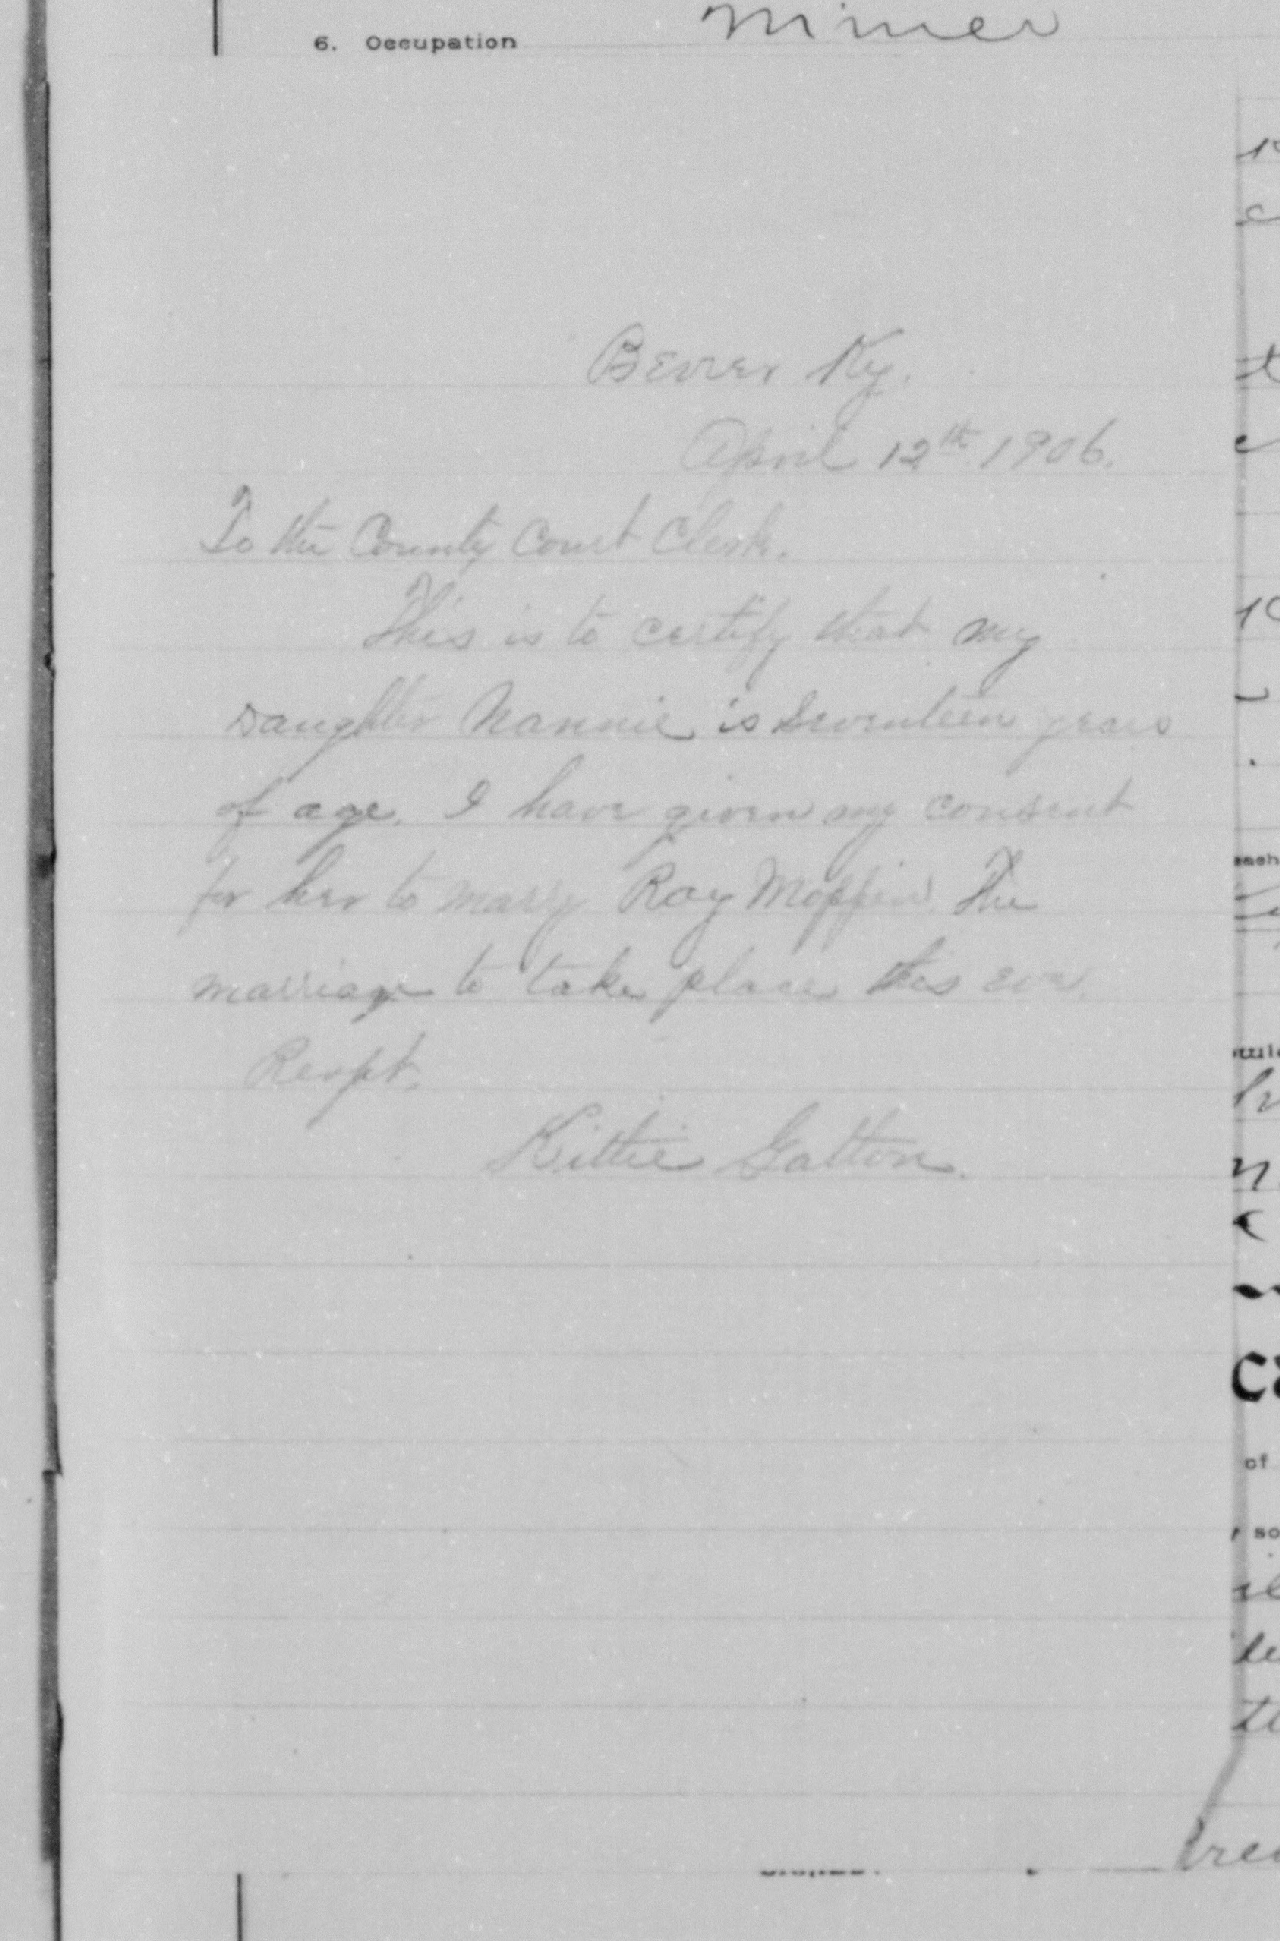 6. Occupation Miner
Bevier Ky.
April 12th 1906.
To the County Court Clerk.
This is to certify that my
Daughter Nannie is Seventeen years
of age. I have given my consent
for her to marry Ray Moffin. The
marriage to take place this eve.
Respt.
Kittie Galton.